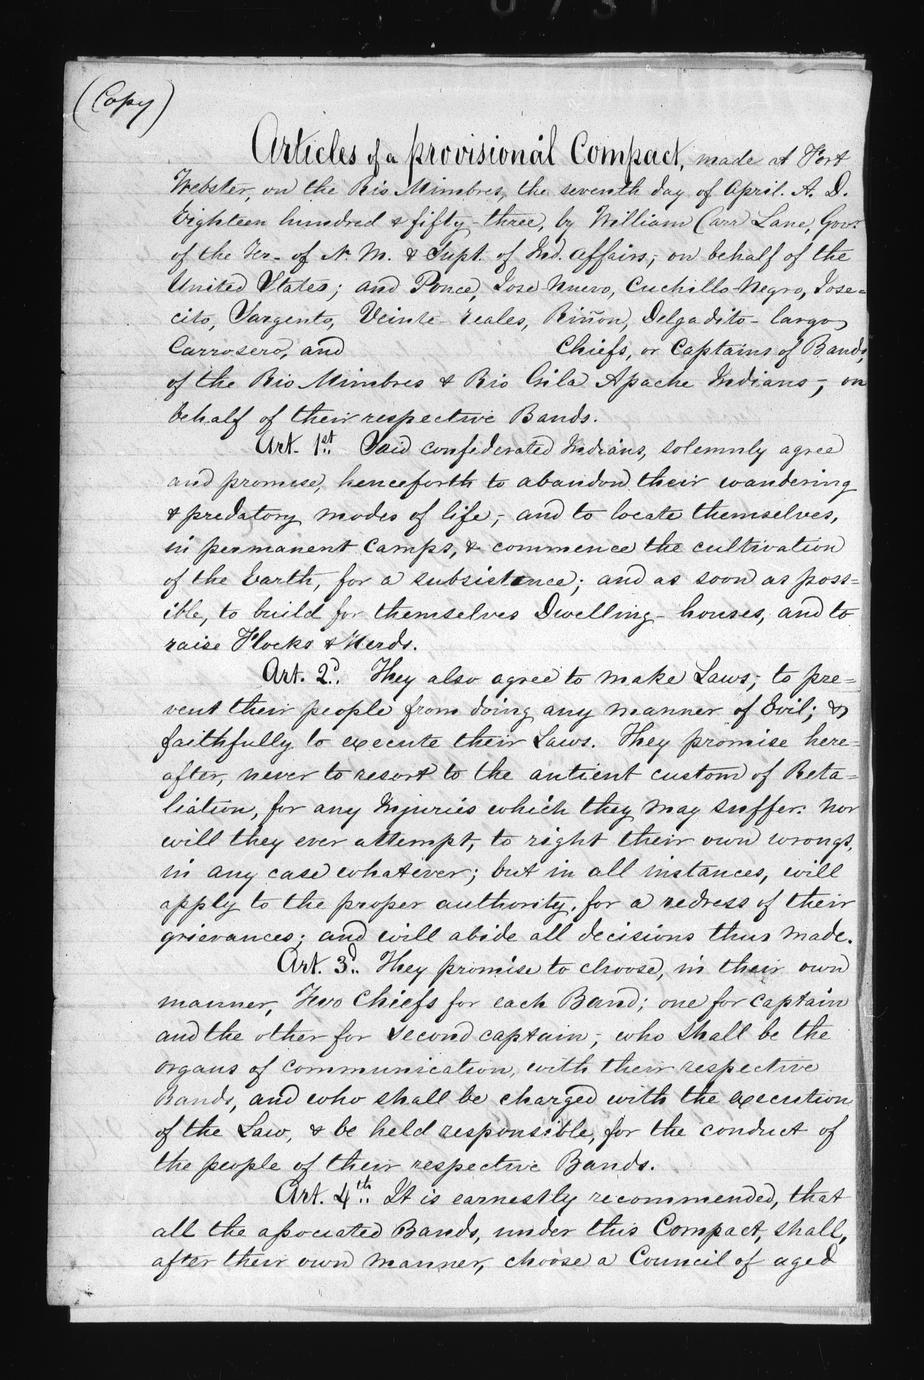 (Copy)
Articles of a provisional Compact, made at Fort
Webster, on the Rio Mimbres, the seventh day of April. A. D.
Eighteen hundred & fifty-three, by William Carr Lane, Govr.
of the Ter- of N. M. & Supt. of Ind. affairs, on behalf of the
United States; and Ponce, Jose Nuevo, Cuchillo-Negro, Jose=
cito, Sargento, Veinte-reales, Riñon, Delgadito-largo,
Carrosero, and Chiefs, or Captains of Bands,
of the Rio Mimbres & Rio Gila Apache Indians-, on
behalf of their respective Bands.
Art. 1st. Said confederated Indians, solemnly agree
and promise, henceforth to abandon their wandering
& predatory modes of life,- and to locate themselves,
in permanent camps, & commence the cultivation
of the Earth, for a subsistence; and as soon as poss=
ible, to build for themselves Dwelling-houses, and to
raise Flocks & Herds.
Art. 2d. They also agree to make Laws, to pre=
vent their people from doing any manner of Evil; &
faithfully to execute their Laws. They promise here=
after, never to resort to the antient custom of Reta=
liation, for any Injuries which they may suffer: nor
will they ever attempt, to right their own wrongs,
in any case whatever; but in all instances, will
apply to the proper authority, for a redress of their
grievances; and will abide all decisions thus made.
Art. 3d. They promise to choose, in their own
manner, Two Chiefs for each Band; one for captain
and the other for second captain-, who shall be the
organs of communication, with their respective
Bands, and who shall be charged with the execution
of the Law, & be held responsible, for the conduct of
the people of their respective Bands.
Art. 4th. It is earnestly recommended, that
all the associated Bands, under this Compact, shall,
after their own manner, choose a Council of aged